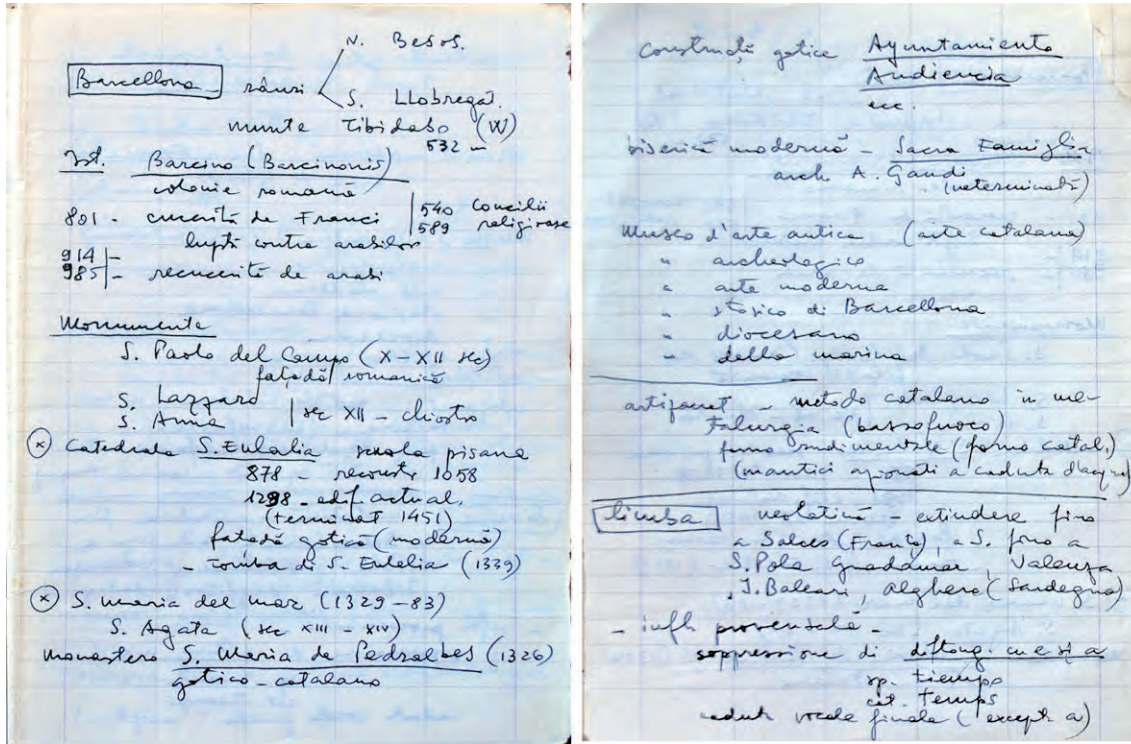 N. Besos.
Barcellona râuri
S. Llobregat.
munte Tibidabo (W)
532 m
Ist. Barcino (Barcinonis)
colonie romană
801 - cucerită de Franci | 540 Concilii
589 religioase
luptă contra arabilor
914 -
985 - recucerită de arabi
Monumente
S. Paolo del Campo (X-XII sec)
fațadă romanică
S. Lazzaro
S. Anna | sec XII - chiostro
(x) Catedrala S. Eulalia scuola pisana
878 - reconstr 1058
1298 - edif. actual.
(terminat 1451)
fațadă gotică (modernă)
- tomba di S. Eulalia (1339)
(x) S. Maria del mar (1329-83)
S. Agata (sec XIII - XIV)
monastero S. Maria de Pedralbes (1326)
gotico-catalano
Construcții gotice Ayuntamiento
Audiencia
ecc.
biserică modernă - Sacra Famiglia
arch A. Gaudi
(neterminată)
Museo d'arte antica (arte catalana)
" archeologico
" arte moderna
" storico di Barcellona
" diocesano
" della marina
artifanat - metodo catalano in me-
talurgia (bassofuoco)
forno rudimentale (forno catal.)
(mantici azionati a caduta d'acqua)
limba neolatină - extindere fino
a Salces (Franța), a S. fino a
S. Pola Guadamar, Valenza
I. Baleari, Alghero (Sardegna)
- infl. provensală -
soppressione di diftong. cu e și a
sp. tiempo
cat. temps
caduta vocale finale (excepta a)